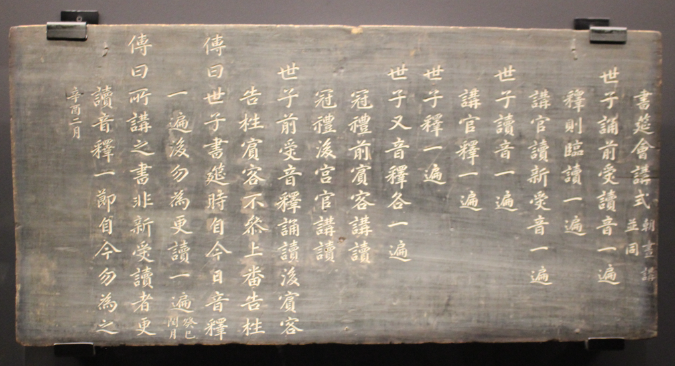 書筵會講式 朝晝講並同
世子誦前受讀音一遍
釋則臨讀一遍
講官讀新受音一遍
世子讀音一遍
講官釋一遍
世子釋一遍
世子又音釋各一遍
冠禮前賓客講讀
冠禮後宮官講讀
世子前受音釋誦讀後賓客
告栍賓客不參上番告栍
傳曰世子書筵時自今日音釋
一遍後勿爲更讀一遍 癸巳閏月
傳曰所講之書非新受讀者更
讀音釋一節自今勿爲之
辛酉二月